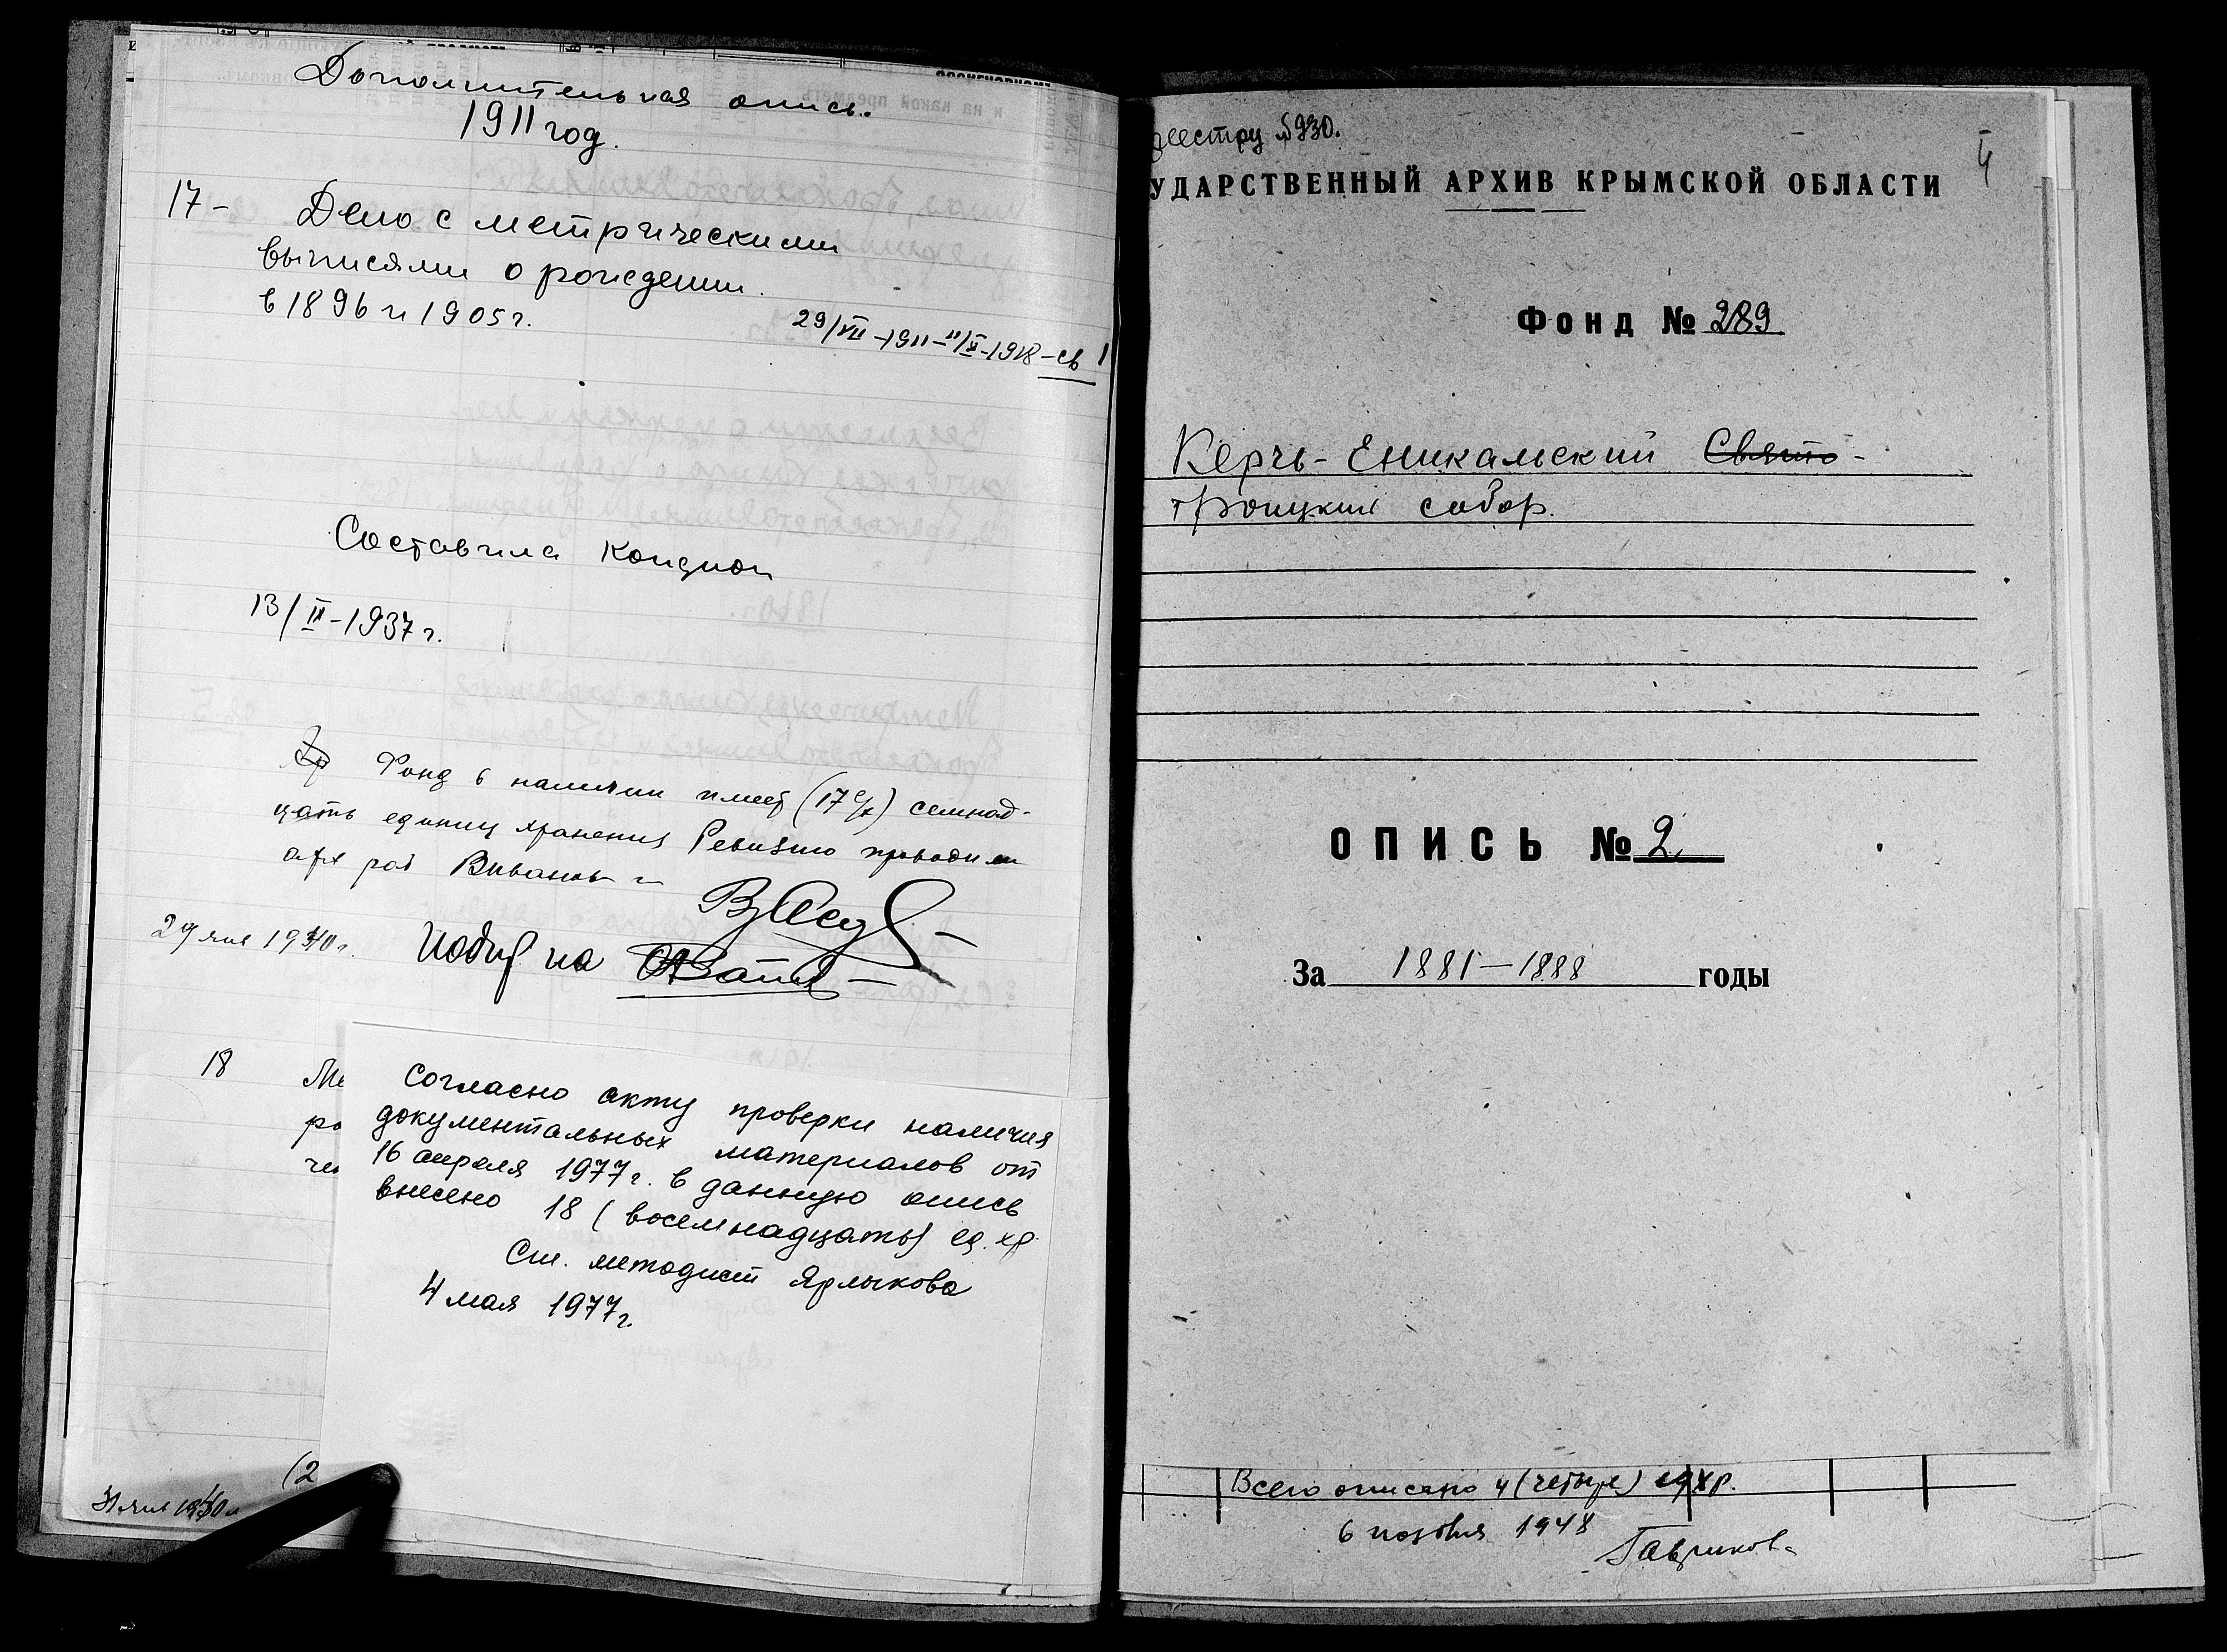 Дополнительная опись.
1911 год.
17- Дело с метрическими
выписями о рождении
в 1896 и 1905 г.
29/VII-1911-11/X-1918-св 1
Составила
13/II-1937 г.
Фонд в наличии имеет (17 ) семнад-
цать единиц хранения Ревизию проводили
29 янв 1940 г.
18 Ме
ро
че
Согласно акту проверки наличия
документальных материалов от
16 апреля 1977 г. в данную опись
внесено 18 (восемнадцать) ед. хр.
Ст. методист Ярлыкова
4 мая 1977 г.
(2
31 янв 1940 г
реестру №930.
УДАРСТВЕННЫЙ АРХИВ КРЫМСКОЙ ОБЛАСТИ
4
Фонд № 289
Керчь-Еникальский Свято-
троицкий собор.
ОПИСЬ № 2
За 1881-1888 годы
Всего описано 4 (четыре) ед хр.
6 ноября 1948
Гаврикова